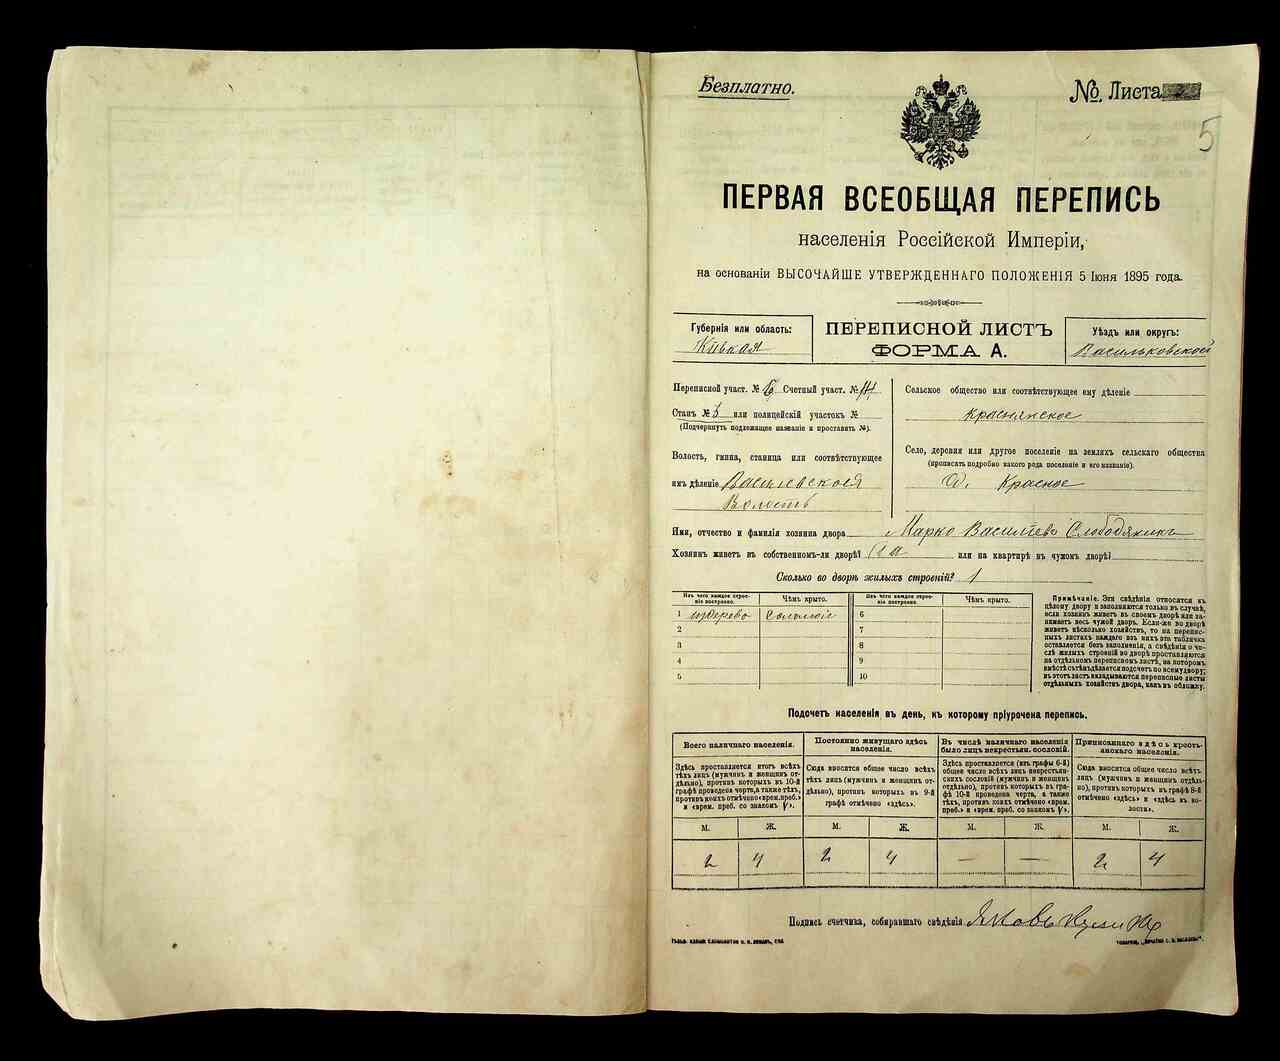 Безплатно.
№ Листа
5
ПЕРВАЯ ВСЕОБЩАЯ ПЕРЕПИСЬ
населенія Россійской Имперіи,
на основаніи ВЫСОЧАЙШЕ УТВЕРЖДЕННАГО ПОЛОЖЕНІЯ 5 Іюня 1895 года.
Губернія или область:
ПЕРЕПИСНОЙ ЛИСТЪ
ФОРМА А.
Уѣздъ или округъ:
Васильковской
Переписной участ. № 6 Счетный участ. №
Станъ № 3 или полицейскій участокъ №
(Подчеркнуть подлежащее названіе и проставить №).
Волость, гмина, станица или соотвѣтствующее
имъ дѣленіе Василевская
Волость
Сельское общество или соотвѣтствующее ему дѣленіе
Краснянское
Село, деревня или другое поселеніе на земляхъ сельскаго общества
(прописать подробно какого рода поселеніе и его названіе).
Красное
Имя, отчество и фамилія хозяина двора Марко Василіевъ Слободяникъ
Хозяинъ живетъ въ собственномъ-ли дворѣ? или на квартирѣ въ чужомъ дворѣ?
Сколько во дворѣ жилыхъ строеній? 1
Изъ чего каждое строеніе построено.
Чѣмъ крыто.
Изъ чего каждое строеніе построено.
Чѣмъ крыто.
1 издерево соломіе 6
2 7
3 8
4 9
5 10
Примѣчаніе. Эти свѣдѣнія относятся къ
цѣлому двору и заполняются только въ случаѣ,
если хозяинъ живетъ въ своемъ дворѣ или занимаетъ
весь чужой дворъ. Если-же во дворѣ
живетъ нѣсколько хозяйствъ, то на переписныхъ
листахъ каждаго изъ нихъ эта табличка
оставляется безъ заполненія, а свѣдѣнія о числѣ
жилыхъ строеній во дворѣ проставляются
на отдѣльномъ переписномъ листѣ, на которомъ
вмѣстѣ съ тѣмъ дѣлается подсчетъ по всему двору;
въ этотъ листъ вкладываются переписные листы
отдѣльныхъ хозяйствъ двора, какъ въ обложку.
Подсчетъ населенія въ день, къ которому пріурочена перепись.
Всего наличнаго населенія.
Постоянно живущаго здѣсь
населенія.
Въ числѣ наличнаго населенія
было лицъ некрестьян. сословій.
Приписаннаго здѣсь крестьянскаго
населенія.
Здѣсь проставляется итогъ всѣхъ
тѣхъ лицъ (мужчинъ и женщинъ отдѣльно),
противъ которыхъ въ 10-й
графѣ проведена черта, а также тѣхъ,
противъ коихъ отмѣчено «врем. преб.»
и «врем. преб. со знакомъ V».
Сюда вносится общее число всѣхъ
тѣхъ лицъ (мужчинъ и женщинъ отдѣльно),
противъ которыхъ въ 9-й
графѣ отмѣчено «здѣсь».
Здѣсь проставляется (изъ графы 6-й)
общее число всѣхъ лицъ некрестьянскихъ
сословій (мужчинъ и женщинъ
отдѣльно), противъ которыхъ въ графѣ
10-й проведена черта, а также
тѣхъ, противъ коихъ отмѣчено «врем.
преб.» и «врем. преб. со знакомъ V».
Сюда вносится общее число всѣхъ
лицъ (мужчинъ и женщинъ отдѣльно),
противъ которыхъ въ графѣ 8-й
отмѣчено «здѣсь» и «здѣсь въ волости».
М. Ж. М. Ж. М. Ж. М. Ж.
2 4 2 4 — — 2 4
Подпись счетчика, собиравшаго свѣдѣнія Яковъ